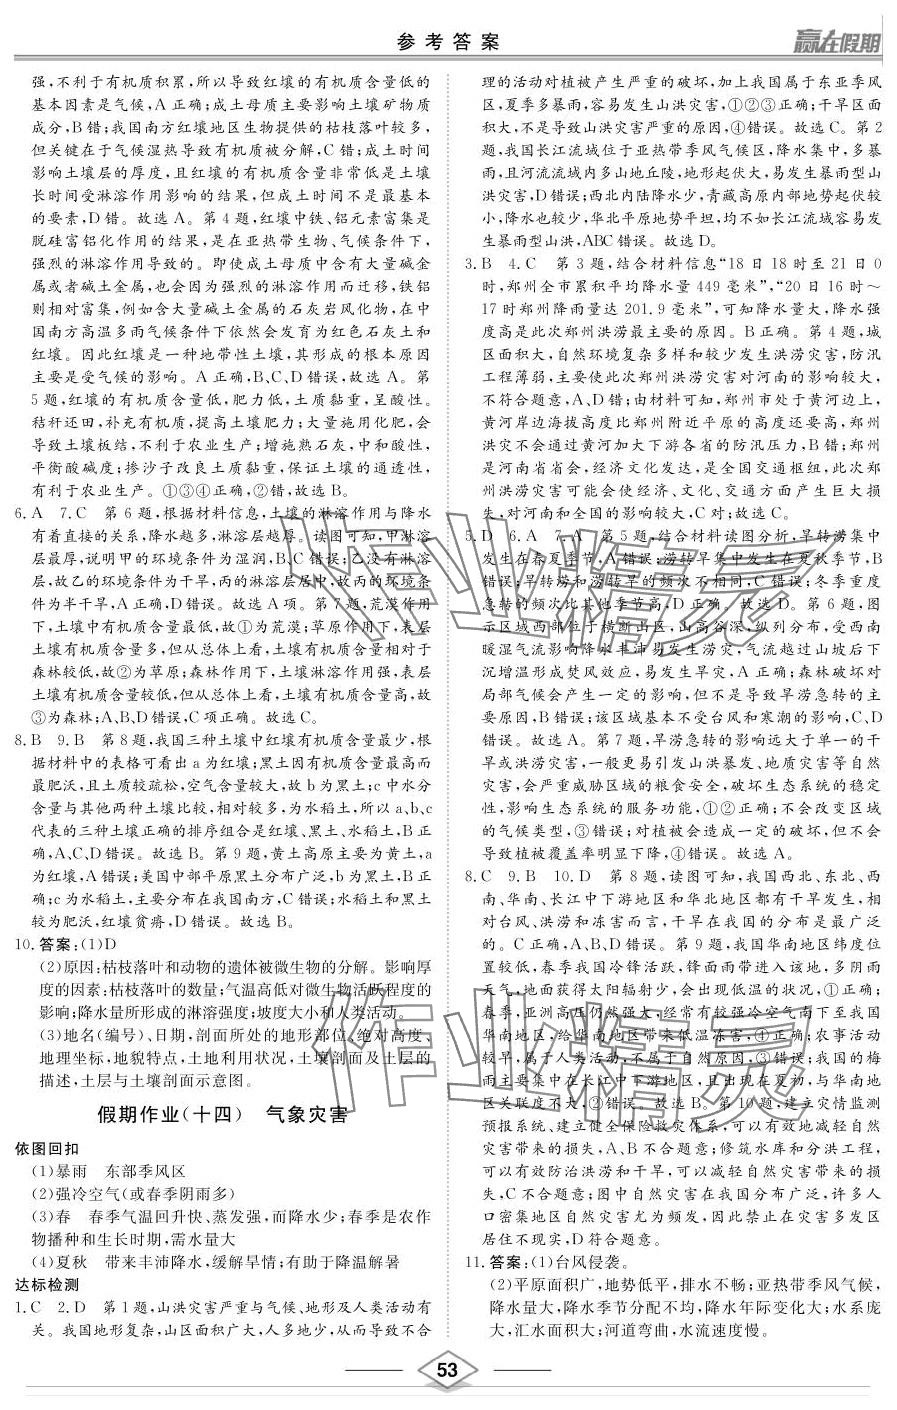 参考答案
赢在假期
强,不利于有机质积累,所以导致红壤的有机质含量低的
基本因素是气候,A 正确;成土母质主要影响土壤矿物质
成分,B错;我国南方红壤地区生物提供的枯枝落叶较多,
但关键在于气候湿热导致有机质被分解,C 错;成土时间
影响土壤层的厚度,且红壤的有机质含量非常低是土壤
长时间受淋溶作用影响的结果,但成土时间不是最基本
的要素,D错。故选 A。第 4 题,红壤中铁、铝元素富集是
脱硅富铝化作用的结果,是在亚热带生物、气候条件下,
强烈的淋溶作用导致的。即使成土母质中含有大量碱金
属或者碱土金属,也会因为强烈的淋溶作用而迁移,铁铝
则相对富集,例如含大量碱土金属的石灰岩风化物,在中
国南方高温多雨气候条件下依然会发育为红色石灰土和
红壤。因此红壤是一种地带性土壤,其形成的根本原因
主要是受气候的影响。A 正确,B、C、D错误,故选 A。第
5 题,红壤的有机质含量低,肥力低,土质黏重,呈酸性。
秸秆还田,补充有机质,提高土壤肥力;大量施用化肥,会
导致土壤板结,不利于农业生产;增施熟石灰,中和酸性,
平衡酸碱度;掺沙子改良土质黏重,保证土壤的通透性,
有利于农业生产。①③④正确,②错,故选 B。
6. A 7. C 第 6 题,根据材料信息,土壤的淋溶作用与降水
有着直接的关系,降水越多,淋溶层越厚。读图可知,甲淋溶
层最厚,说明甲的环境条件为湿润,B、C错误;乙没有淋溶
层,故乙的环境条件为干旱,丙的淋溶层居中,故丙的环境条
件为半干旱,A 正确,D错误。故选 A 项。第 7 题,荒漠作用
下,土壤中有机质含量最低,故①为荒漠;草原作用下,表层
土壤有机质含量多,但从总体上看,土壤有机质含量相对于
森林较低,故②为草原;森林作用下,土壤淋溶作用强,表层
土壤有机质含量较低,但从总体上看,土壤有机质含量高,故
③为森林;A、B、D错误,C项正确。故选 C。
8. B 9. B 第 8 题,我国三种土壤中红壤有机质含量最少,根
据材料中的表格可看出 a 为红壤;黑土因有机质含量最高而
最肥沃,且土质较疏松,空气含量较大,故 b 为黑土;c 中水分
含量与其他两种土壤比较,相对较多,为水稻土,所以 a、b、c
代表的三种土壤正确的排序组合是红壤、黑土、水稻土,B 正
确,A、C、D错误。故选 B。第 9 题,黄土高原主要为黄土,a
为红壤,A 错误;美国中部平原黑土分布广泛,b 为黑土,B 正
确;c 为水稻土,主要分布在我国南方,C 错误;水稻土和黑土
较为肥沃,红壤贫瘠,D错误。故选 B。
10. 答案:(1)D
(2)原因:枯枝落叶和动物的遗体被微生物的分解。影响厚
度的因素:枯枝落叶的数量;气温高低对微生物活跃程度的
影响;降水量所形成的淋溶强度;坡度大小和人类活动。
(3)地名(编号)、日期,剖面所处的地形部位、绝对高度、
地理坐标,地貌特点,土地利用状况,土壤剖面及土层的
描述,土层与土壤剖面示意图。
假期作业(十四) 气象灾害
依图回扣
(1)暴雨 东部季风区
(2)强冷空气(或春季阴雨多)
(3)春 春季气温回升快、蒸发强,而降水少;春季是农作
物播种和生长时期,需水量大
(4)夏秋 带来丰沛降水,缓解旱情;有助于降温解暑
达标检测
1. C 2. D 第 1 题,山洪灾害严重与气候、地形及人类活动有
关。我国地形复杂,山区面积广大,人多地少,从而导致不合
理的活动对植被产生严重的破坏,加上我国属于东亚季风
区,夏季多暴雨,容易发生山洪灾害,①②③正确;干旱区面
积大,不是导致山洪灾害严重的原因,④错误。故选 C。第 2
题,我国长江流域位于亚热带季风气候区,降水集中,多暴
雨,且河流流域内多山地丘陵,地形起伏大,易发生暴雨型山
洪灾害,D正确;西北内陆降水少,青藏高原内部地势起伏较
小,降水也较少,华北平原地势平坦,均不如长江流域容易发
生暴雨型山洪,ABC 错误。故选 D。
3. B 4. C 第 3 题,结合材料信息“18 日 18 时至 21 日 0
时,郑州全市累积平均降水量 449 毫米”,“20 日 16 时～
17 时郑州降雨量达 201.9 毫米”,可知降水量大,降水强
度高是此次郑州洪涝最主要的原因。B 正确。第 4 题,城
区面积大,自然环境复杂多样和较少发生洪涝灾害,防汛
工程薄弱,主要使此次郑州洪涝灾害对河南的影响较大,
不符合题意,A、D错;由材料可知,郑州市处于黄河边上,
黄河岸边海拔高度比郑州附近平原的高度还要高,郑州
洪灾不会通过黄河加大下游各省的防汛压力,B 错;郑州
是河南省省会,经济文化发达,是全国交通枢纽,此次郑
州洪涝灾害可能会使经济、文化、交通方面产生巨大损
失,对河南和全国的影响较大,C 对;故选 C。
5. D 6. A 7. A 第 5 题,结合材料读图分析,旱转涝集中
发生在春夏季节,A 错误;涝转旱集中发生在夏秋季节,B
错误;旱转涝和涝转旱的频次不相同,C 错误;冬季重度
急转的频次比其他季节高,D正确。故选 D。第 6 题,图
示区域西部位于横断山区,山高谷深,纵列分布,受西南
暖湿气流影响降水丰沛易发生涝灾,气流越过山坡后下
沉增温形成焚风效应,易发生旱灾,A 正确;森林破坏对
局部气候会产生一定的影响,但不是导致旱涝急转的主
要原因,B 错误;该区域基本不受台风和寒潮的影响,C、D
错误。故选 A。第 7 题,旱涝急转的影响远大于单一的干
旱或洪涝灾害,一般更易引发山洪暴发、地质灾害等自然
灾害,会严重威胁区域的粮食安全,破坏生态系统的稳定
性,影响生态系统的服务功能,①②正确;不会改变区域
的气候类型,③错误;对植被会造成一定的破坏,但不会
导致植被覆盖率明显下降,④错误。故选 A。
8. C 9. B 10. D 第 8 题,读图可知,我国西北、东北、西
南、华南、长江中下游地区和华北地区都有干旱发生,相
对台风、洪涝和冻害而言,干旱在我国的分布是最广泛
的。C 正确,A、B、D错误。第 9 题,我国华南地区纬度位
置较低,春季我国冷锋活跃,锋面雨带进入该地,多阴雨
天气,地面获得太阳辐射少,会出现低温的状况,①正确;
春季,亚洲高压仍然强大,经常有较强冷空气南下至我国
华南地区,给华南地区带来低温冻害,④正确;农事活动
较早,属于人类活动,不属于自然原因,③错误;我国的梅
雨主要集中在长江中下游地区,且出现在夏初,与华南地
区关联度不大,②错误。故选 B。第 10 题,建立灾情监测
预报系统、建立健全保险救灾体系,可以有效地减轻自然
灾害带来的损失,A、B 不合题意;修筑水库和分洪工程,
可以有效防治洪涝和干旱,可以减轻自然灾害带来的损
失,C 不合题意;图中自然灾害在我国分布广泛,许多人
口密集地区自然灾害尤为频发,因此禁止在灾害多发区
居住不现实,D符合题意。
11. 答案:(1)台风侵袭。
(2)平原面积广,地势低平,排水不畅;亚热带季风气候,
降水量大,降水季节分配不均,降水年际变化大;水系庞
大,汇水面积大;河道弯曲,水流速度慢。
53
作业精灵
作业精灵